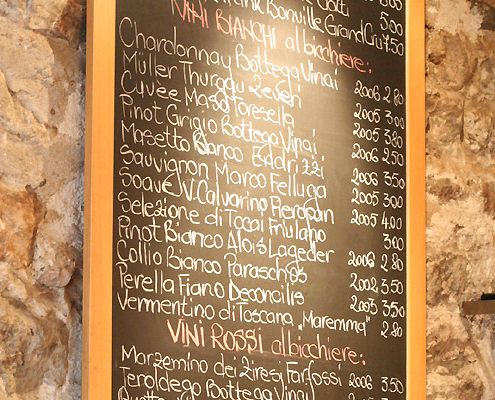 Frank Bonville Grand Cru 7.50
5.00
VINI BIANCHI al bicchiere:
Chardonnay Bottega Vinai 2006 2.80
Müller Thurgau 2005 3.00
Cuvee Maso Toresella 2005
Pinot Grigio Bottega Vinai 2006 2.50
Masetto Bianco Endrizzi 2006 3.50
Sauvignon Marco Felluga 2005 3.00
Soave V. Calvarino Pieropan 2005 4.00
Selezione di Tocai Friulano 3.00
Pinot Bianco Alois Lageder 2006 2.80
Collio Bianco Paraschos 2002 3.50
Perella Fiano Deconcilis 2005 3.50
Vermentino di Toscana "Maremma" 2.80
VINI ROSSI al bicchiere:
Marzemino dei Ziresi Farfossi 2006 3.50
Teroldego Bottega Vinai